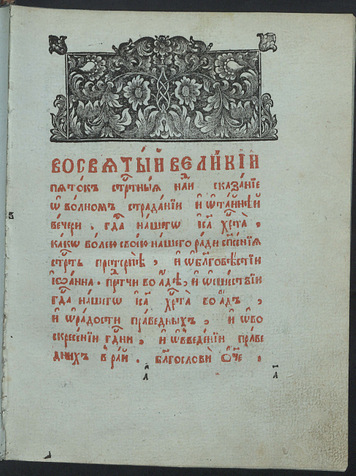 ВОСВЯТЫ́Й ВЕЛИ́КІЙ
пѧто́къ стрⷭ҇тныѧ нлⷣи сказа́нїе
ѡ҆ во́лномъ страда́нїи и҆ ѡ҆ та́йнѣй
ве́чери . гдⷭ҇а на́шегѡ і҆с҃а хрⷭ҇та̀ ,
ка́кѡ во́лею свое́ю на́шего ра́ди спⷭ҇е́нїѧ
стрⷭ҇ть претерпѣ̀ , и҆ ѡ҆ бл҃говѣ́стїи
і҆ѡа́нна . прⷣтчи во а҆́дѣ , и҆ ѡ҆ сше́ствїи
гдⷭ҇а на́шегѡ і҆с҃а хрⷭ҇та̀ во а҆́дъ ,
и҆ ѡ҆ ра́дости пра́ведныхъ , и҆ ѡ҆ во
скресе́нїи гдⷭ҇ни , и҆ ѡ҆ введе́нїи пра́ве
дныхъ в ра́й . бл҃гослови̂ ѻ҆́ч҃е .